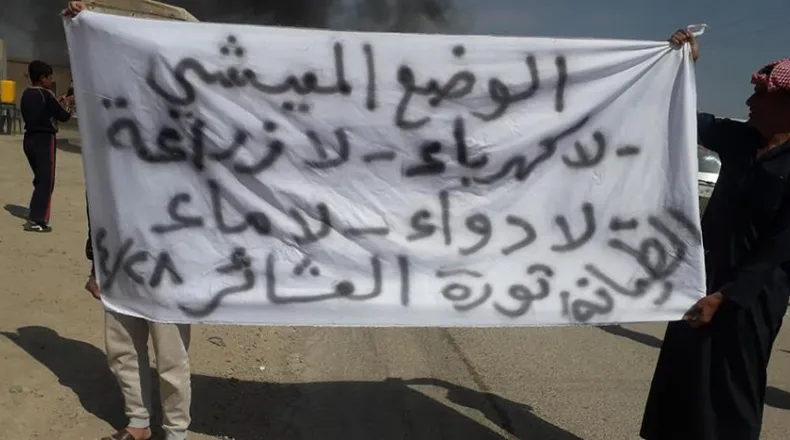 الوضع المعيشي
-لا كهرباء - لا زراعة
لا دواء - لا ماء
ثورة العشائر ٤/٢٨